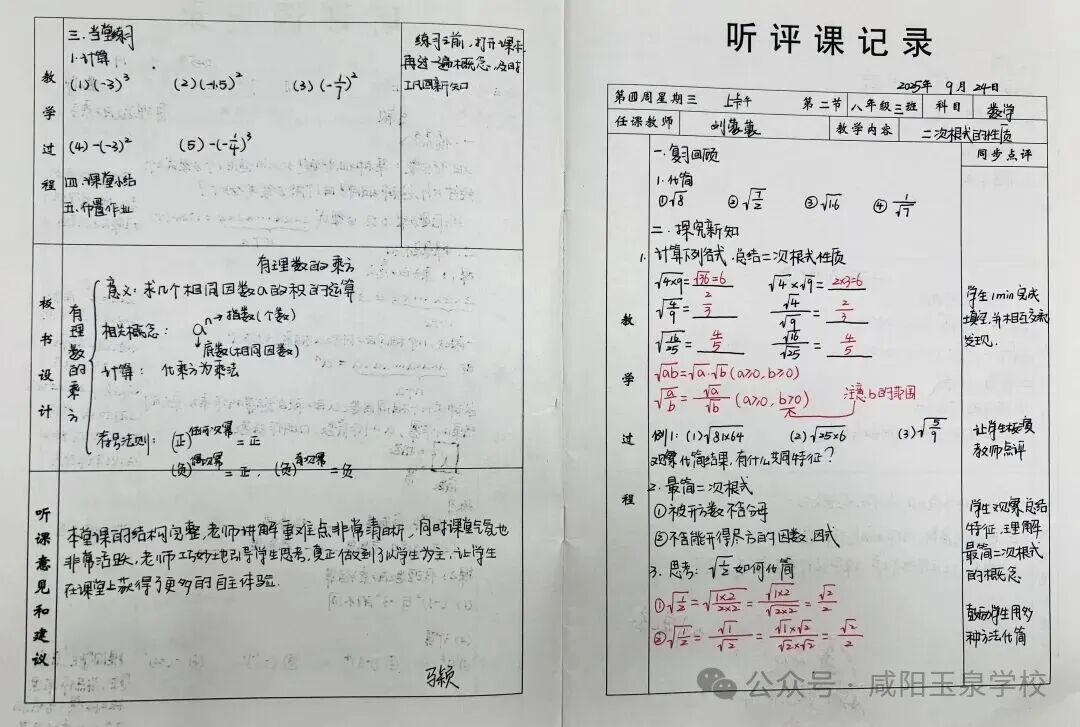 三、当堂练习
1.计算
(1)(-3)³ (2)(-1.5)² (3)(-1/7)²
(4)-(-3)² (5)-(-1/4)³
四.课堂小结
五.布置作业
教学过程
练习之前,打开课本
再读一遍概念,及时
巩固新知
板书设计
有理数的乘方
有理数的乘方
意义:求几个相同因数a的积的运算
相关概念: aⁿ→指数(个数)
↓底数(相同因数)
计算: 化乘方为乘法
符号法则: (正)^任何次幂=正
(负)^偶次幂=正, (负)^奇次幂=负
听课意见和建议
本堂课的结构完整,老师讲解重难点非常清晰,同时课堂气氛也
非常活跃,老师巧妙地引导学生思考,真正做到了以学生为主,让学生
在课堂上获得了更多的自主体验.
马颖
听评课记录
2025年 9月 24日
第四周星期三 上午 第二节 八年级三班 科目 数学
任课教师 刘蓉蓉 教学内容 二次根式的性质
教学过程
同步点评
一.复习回顾
1.化简
①√8 ②√(7/2) ③√16 ④1/√7
二.探究新知
1.计算下列各式,总结二次根式性质
√(4×9)=√36=6 √4×√9=2×3=6
√(4/9)=2/3 √4/√9=2/3
√(16/25)=4/5 √16/√25=4/5
√ab=√a·√b(a≥0,b≥0)
√(a/b)=√a/√b(a≥0,b>0) 注意b的范围
例1:(1)√(81×64) (2)√(25×6) (3)√(5/9)
观察化简结果,有什么共同特征?
2.最简二次根式
①被开方数不含分母
②不含能开得尽方的因数、因式
3.思考:√(1/2)如何化简
①√(1/2)=√((1×2)/(2×2))=√(1×2)/√(2×2)=√2/2
②√(1/2)=√1/√2=(√1×√2)/(√2×√2)=√2/2
学生1min完成
填空,并相互交流
发现.
让学生板演
教师点评
学生观察总结
特征,理解
最简二次根式
的概念
鼓励学生用多
种方法化简
公众号·咸阳玉泉学校